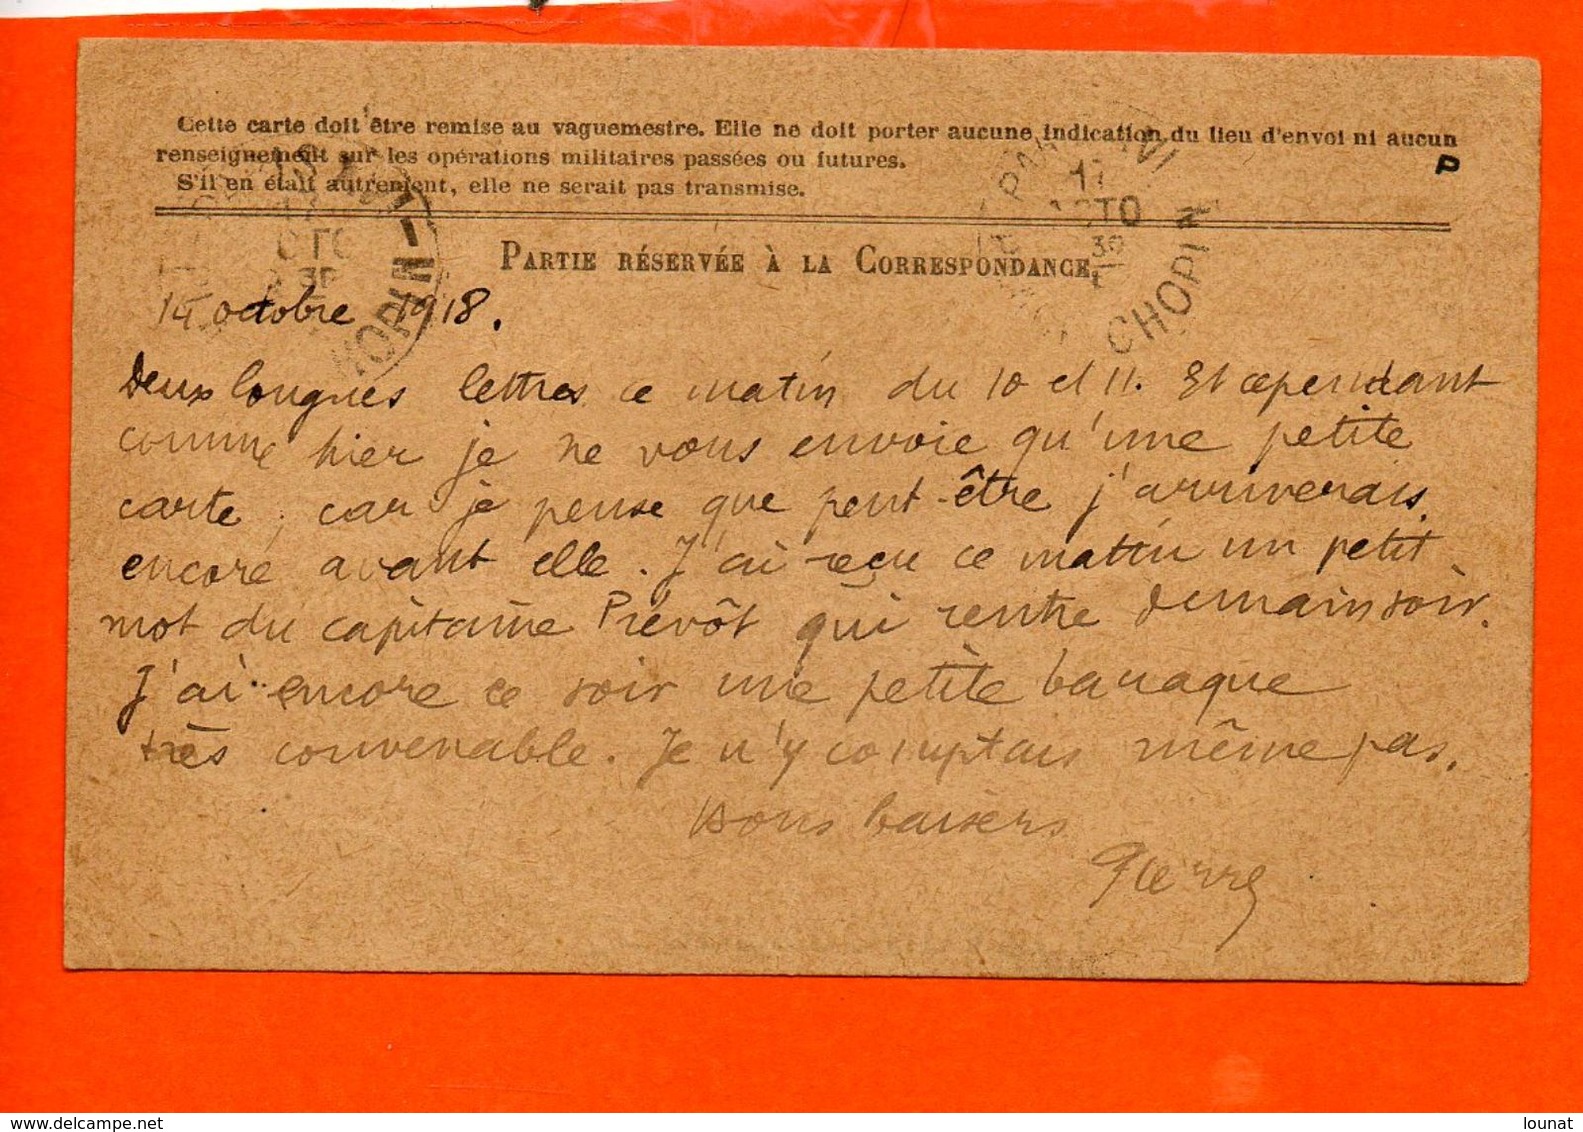 Cette carte doit être remise au vaguemestre. Elle ne doit porter aucune indication du lieu d'envoi ni aucun
renseignement sur les opérations militaires passées ou futures.
S'il en était autrement, elle ne serait pas transmise.
P
17
OCTO
30
CHOPIN
PARTIE RÉSERVÉE À LA CORRESPONDANCE.
14 octobre 1918.
Deux longues lettres ce matin du 10 et 11. Et cependant
comme hier je ne vous envoie qu'une petite
carte, car je pense que peut-être j'arriverais
encore avant elle. J'ai reçu ce matin un petit
mot du capitaine Prévôt qui rentre demain soir.
J'ai encore ce soir une petite baraque
très convenable. Je n'y comptais même pas.
Bons baisers
Pierre
www.delcampe.net
lounat